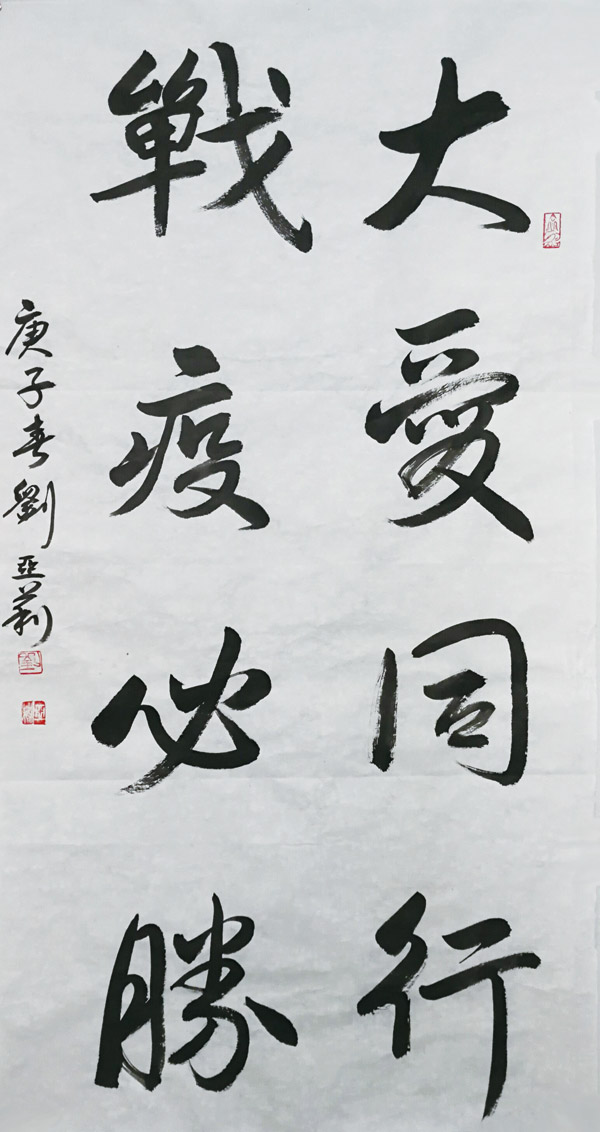 大愛同行
戰疫必勝
庚子春劉亞莉